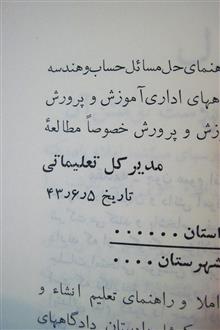 هنمای حل مسائل حساب و هندسه
ههای اداری آموزش و پرورش
زش و پرورش خصوصاً مطالعهٔ
مدیر کل تعلیماتی
تاریخ ۴۳٫۶٫۵
استان ......
شهرستان ....
املا و راهنمای تعلیم انشاء و
دادگاههای